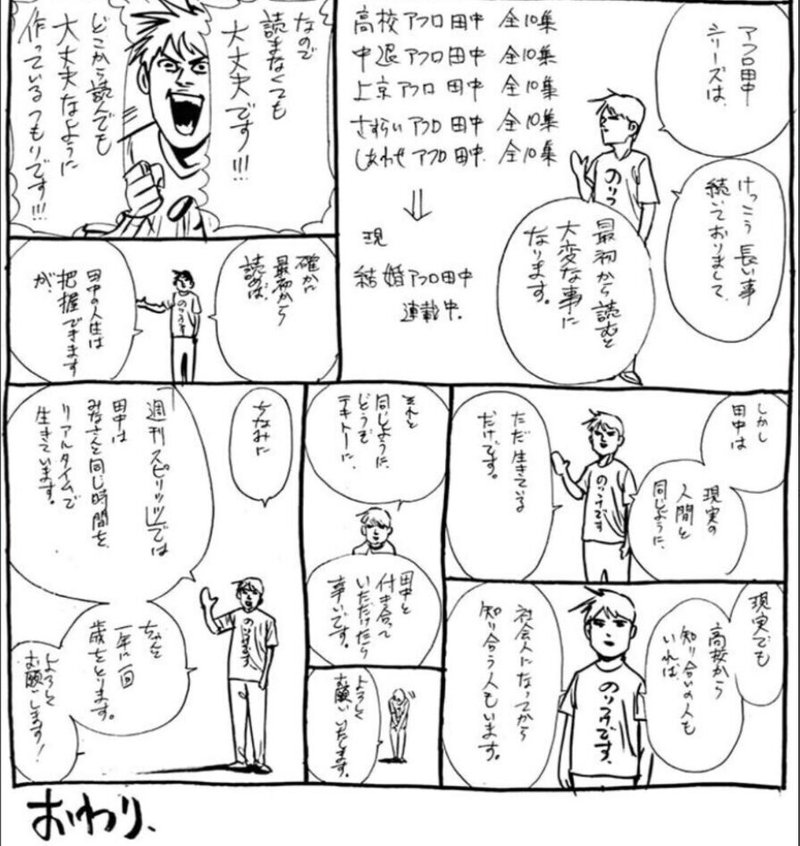 アフロ田中
シリーズは、
けっこう長い事
続いておりまして、
高校アフロ田中 全10集
中退アフロ田中 全10集
上京アフロ田中 全10集
さすらいアフロ田中 全10集
しあわせアフロ田中 全10集
⇓
現
結婚アフロ田中
連載中.
最初から読むと
大変な事に
なります。
のりつ
なので
読まなくても
大丈夫です!!!
どこから読んでも
大丈夫なように
作っているつもりです!!!
確かに
最初から
読めば、
田中の人生は
把握できます
が、
のりつけです
しかし
田中は
現実の
人間と
同じように、
ただ生きている
だけです。
のりつけです
現実でも
高校から
知り合いの人も
いれば
社会人になってから
知り合う人もいます。
のりつけです.
それと
同じように、
どうぞ
テキトーに、
田中と
付き合って
いただけたら
幸いです。
よろしく
お願いいたします。
ちなみに
週刊スピリッツでは
田中は
みなさんと同じ時間を、
リアルタイムで
生きています。
ちゃんと
一年に一回
歳をとります。
よろしく
お願いします!
のりつけです
おわり、